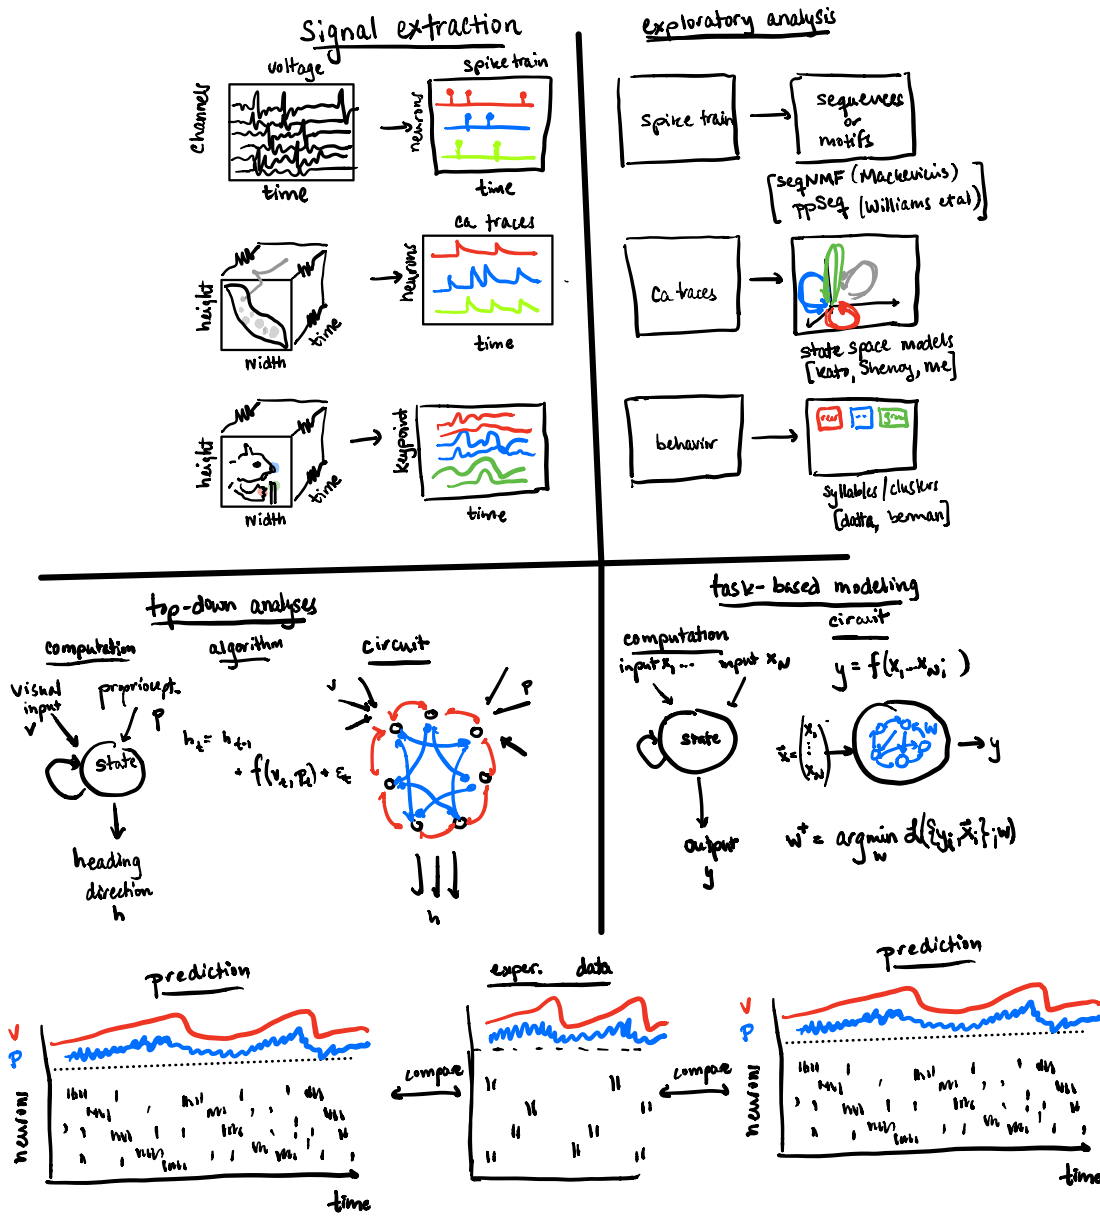 signal extraction
voltage
channels
time
spike train
neurons
time
height
width
time
ca traces
neurons
time
height
width
time
keypoint
time
exploratory analysis
spike train
sequences
or
motifs
[seqNMF (Mackevicius)
ppSeq (Williams et al)]
ca traces
state space models
[kato, Shenoy, me]
behavior
rear
--
syllables/clusters
[datta, berman]
top-down analyses
computation
visual
input
v
propriocept.
p
state
heading
direction
h
algorithm
h_t = h_{t-1}
+ f(v_t, p_t) + ε_t
circuit
v
p
h
task-based modeling
computation
input x_1 ...
input x_N
state
output
y
circuit
y = f(x_1...x_N; )
x⃗ = (x_1
⋮
x_N)
w
y
w* = argmin_w L({y_i, x⃗_i}; w)
prediction
v
p
neurons
time
compare
exper. data
compare
prediction
v
p
neurons
time